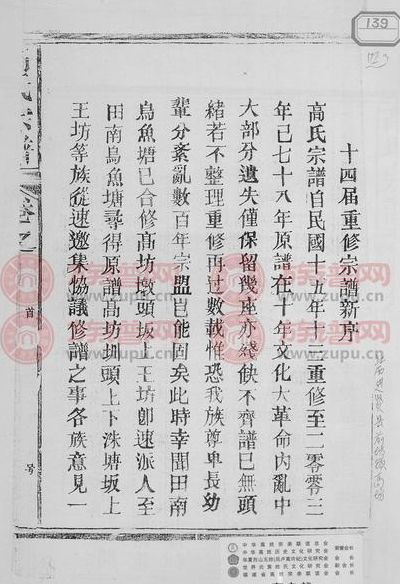 十四届重修宗譜新序
高氏宗譜自民國十五年十三重修至二零零三
年已七十八年原譜在十年文化大革命内亂中
大部分遺失僅保留幾座亦殘缺不齊譜已無頭
緒若不整理重修再过數載惟恐我族尊卑長幼
輩分紊亂數百年宗盟豈能固矣此時幸聞田南
烏魚塘已合修高坊墩頭坂上王坊卽速派人至
田南烏魚塘尋得原譜高坊圳頭上下洙塘坂上
王坊等族從速邀集協議修譜之事各族意見一
首
号
139
寻家谱网
www.zupu.cn
寻家谱网
www.zupu.cn
寻家谱网
www.zupu.cn
寻家谱网
www.zupu.cn